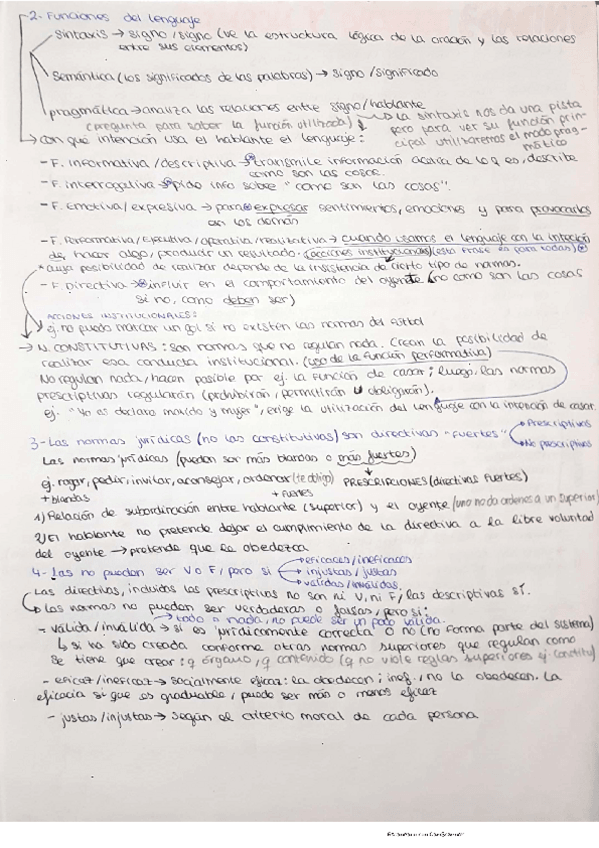 2- Funciones del lenguaje
Sintaxis → signo/signo (ve la estructura lógica de la oración y las relaciones
entre sus elementos)
Semántica (los significados de las palabras) → signo/significado
pragmática → analiza las relaciones entre signo/hablante
(pregunta para saber la función utilizada) → la sintaxis nos da una pista
pero para ver su función prin-
cipal utilizaremos el modo prag-
mático
con qué intención usa el hablante el lenguaje:
- F. Informativa/descriptiva → transmite información acerca de lo q es, describe
como son las cosas.
- F. interrogativa → pido info sobre "como son las cosas".
- F. Emotiva/expresiva → para expresar sentimientos, emociones y para provocarlos
en los demás
- F. Performativa/ejecutiva/operativa/realizativa → cuando usamos el lenguaje con la intención
de hacer algo, producir un resultado. (acciones institucionales) (esta frase es para todas)
* cuya posibilidad de realizar depende de la insistencia de cierto tipo de normas.
- F. Directiva → influir en el comportamiento del oyente (no como son las cosas
si no, como deben ser)
ACCIONES INSTITUCIONALES:
ej. no puedo marcar un gol si no existen las normas del futbol
→ N. CONSTITUTIVAS: son normas que no regulan nada. Crean la posibilidad de
realizar esa conducta institucional. (uso de la función performativa)
No regulan nada, hacen posible por ej. la función de casar; luego, las normas
prescriptivas regularán (prohibirán, permitirán u obligarán).
ej. "Yo os declaro marido y mujer", exige la utilización del lenguaje con la intención de casar.
3- Las normas jurídicas (no las constitutivas) son directivas "fuertes" → Prescriptivas
→ No prescriptivas
Las normas jurídicas (pueden ser más blandas o más fuertes)
ej. rogar, pedir, invitar, aconsejar, ordenar (te obligo) PRESCRIPCIONES (directivas fuertes)
+ blandas + fuertes
1) Relación de subordinación entre hablante (superior) y el oyente (uno no da ordenes a un superior)
2) El hablante no pretende dejar el cumplimiento de la directiva a la libre voluntad
del oyente → pretende que la obedezca
4- Las no pueden ser V o F, pero si → eficaces/ineficaces
→ injustas/justas
→ válidas/inválidas.
Las directivas, incluidas las prescriptivas no son ni V, ni F, las descriptivas sí.
→ Las normas no pueden ser verdaderas o falsas, pero si:
→ todo o nada, no puede ser un poco válida.
- válida/inválida → si es jurídicamente correcta o no (no forma parte del sistema)
↳ si ha sido creada conforme otras normas superiores que regulan como
se tiene que crear: q órgano, q contenido (q no viole reglas superiores ej. constitu)
- eficaz/ineficaz → socialmente eficaz: la obedecen; inef. no la obedecen. La
eficacia si que es graduable, puede ser más o menos eficaz
- justas/injustas → según el criterio moral de cada persona